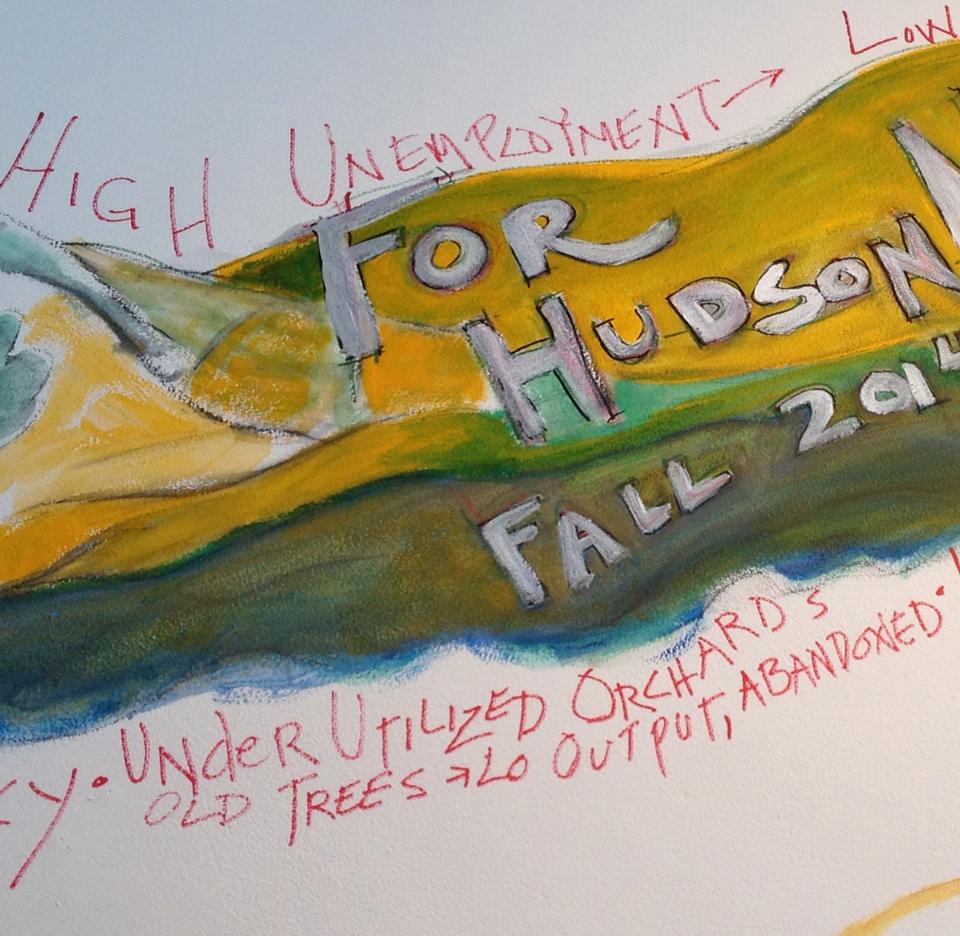 HIGH UNEMPLOYMENT → LOW
FOR
HUDSON
FALL 2014
UNdeR UTILIZED ORCHARDS
OLD TREES → LO OUTPUT, ABANDONED •